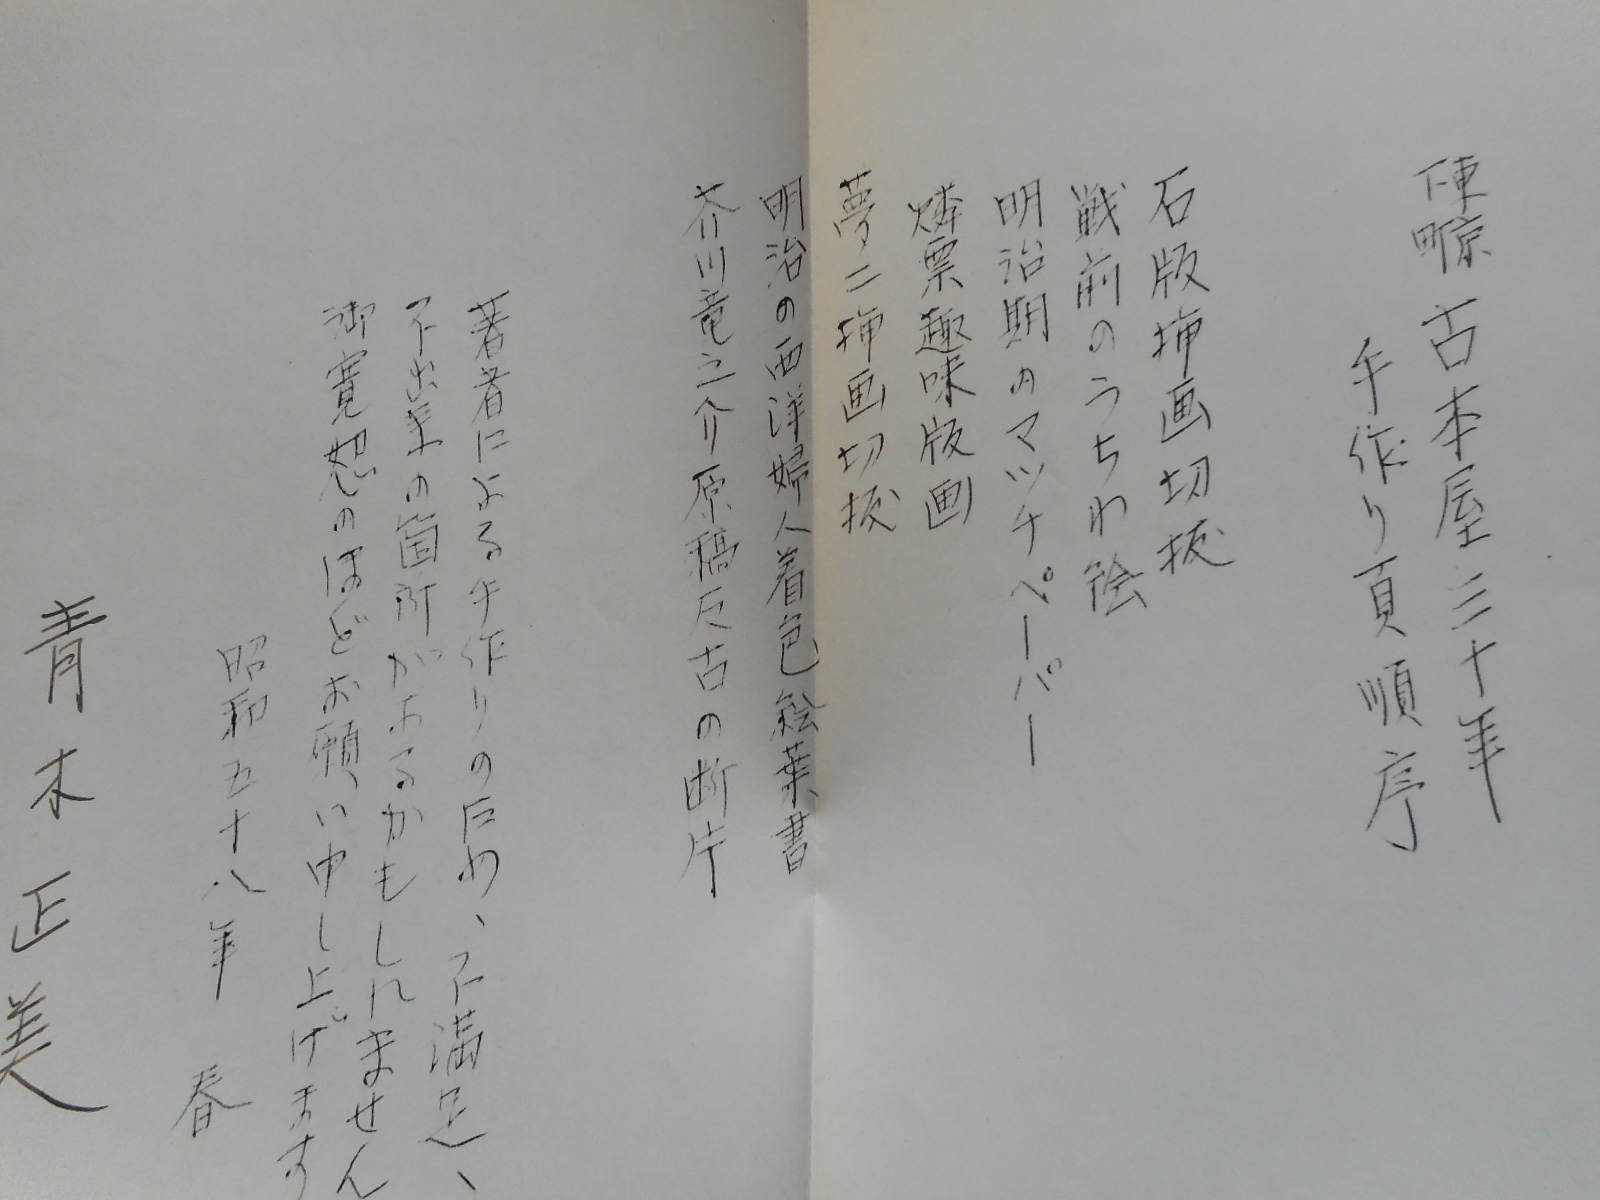 東京下町 古本屋三十年
手作り頁順序
石版挿画切抜
戦前のうちわ絵
明治期のマッチペーパー
燐票趣味版画
夢二挿画切抜
明治の西洋婦人着色絵葉書
芥川竜之介原稿反古の断片
著者による手作りの為め、不満足、
不出来の箇所があるかもしれません
御寛恕のほどお願い申し上げます
昭和五十八年 春
青木正美